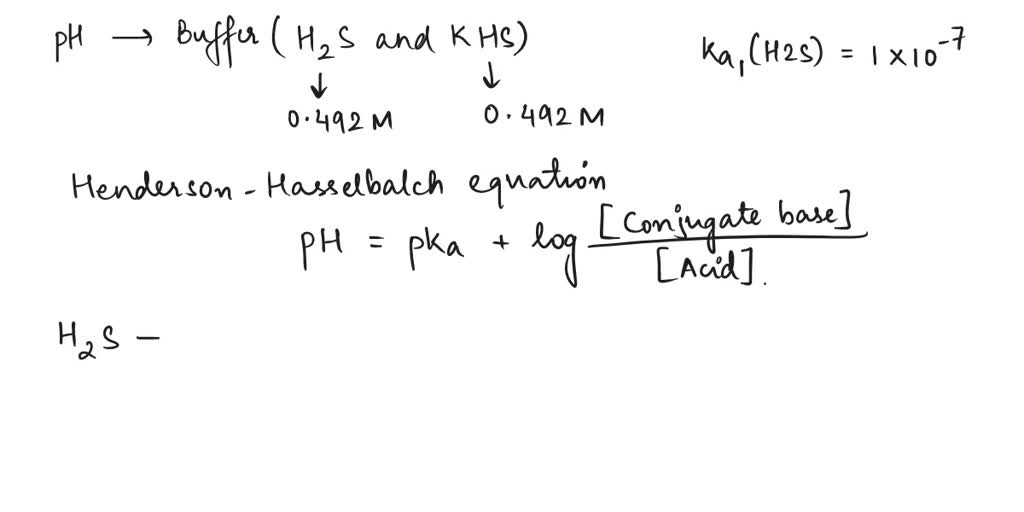 pH → Buffer ( H₂S and KHS)
Ka₁ (H2S) = 1 × 10⁻⁷
↓ ↓
0.492 M 0.492 M
Henderson - Hasselbalch equation
pH = pKa + log [Conjugate base] / [Acid].
H₂S –